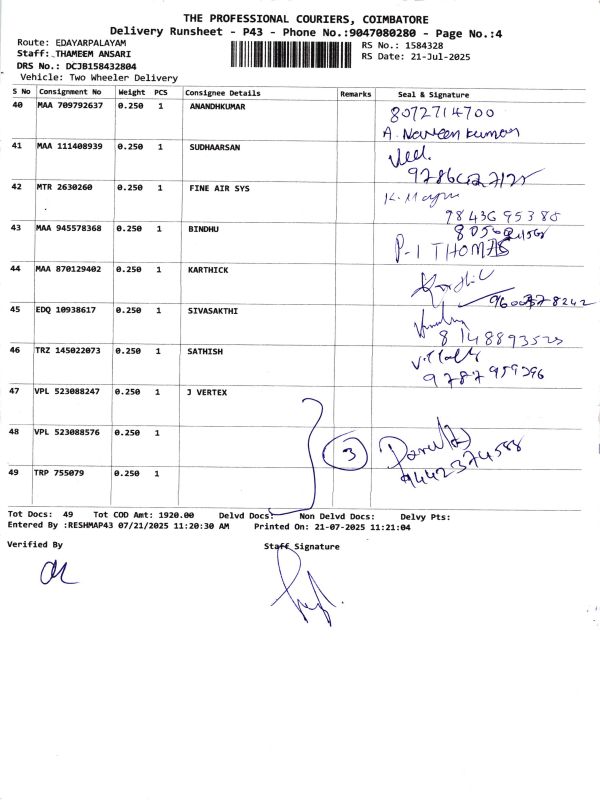 THE PROFESSIONAL COURIERS, COIMBATORE
Delivery Runsheet - P43 - Phone No.:9047080280 - Page No.:4
Route: EDAYARPALAYAM
RS No.: 1584328
Staff: THAMEEM ANSARI
RS Date: 21-Jul-2025
DRS No.: DCJB158432804
Vehicle: Two Wheeler Delivery
S No Consignment No Weight PCS Consignee Details Remarks Seal & Signature
40 MAA 709792637 0.250 1 ANANDHKUMAR 8072714700
A. Naveen kumar
41 MAA 111408939 0.250 1 SUDHAARSAN
42 MTR 2630260 0.250 1 FINE AIR SYS
9843695385
43 MAA 945578368 0.250 1 BINDHU
P-I THOMAS
44 MAA 870129402 0.250 1 KARTHICK
45 EDQ 10938617 0.250 1 SIVASAKTHI
46 TRZ 145022073 0.250 1 SATHISH
9787959396
47 VPL 523088247 0.250 1 J VERTEX
48 VPL 523088576 0.250 1 3
49 TRP 755079 0.250 1 9442374588
Tot Docs: 49 Tot COD Amt: 1920.00 Delvd Docs: Non Delvd Docs: Delvy Pts:
Entered By :RESHMAP43 07/21/2025 11:20:30 AM Printed On: 21-07-2025 11:21:04
Verified By Staff Signature